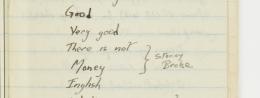 Good
Very good
There is not
Money
Stoney
Broke
Inglish